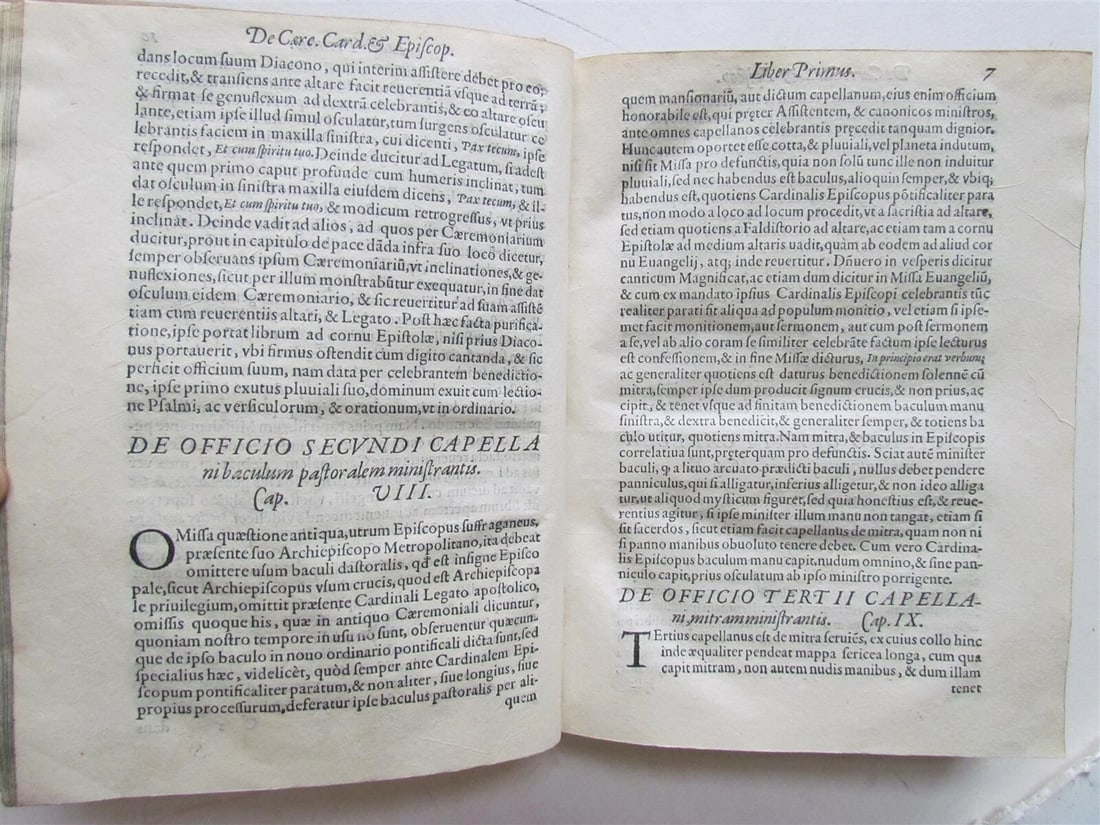 De Cære. Card. & Episcop.
dans locum suum Diacono, qui interim assistere debet pro eo;
recedit, & transiens ante altare facit reuerentiã vsque ad terrã;
& firmat se genuflexum ad dextrã celebrantis, & eo altare oscu
lante, etiam ipse illud simul osculatur, tum surgens osculatur ce
lebrantis faciem in maxilla sinistra, cui dicenti, Pax tecum, ipse
respondet, Et cum spiritu tuo. Deinde ducitur ad Legatum, si adest
ante quem primo caput profunde cum humeris inclinat, tum
dat osculum in sinistra maxilla eiusdem dicens, Pax tecum, & il-
le respondet, Et cum spiritu tuo, & modicum retrogressus, vt prius
inclinat. Deinde vadit ad alios, ad quos per Cæremoniarium
ducitur, prout in capitulo de pace dãda infra suo locõ dicetur,
semper obseruans ipsum Cæremoniariũ, vt inclinationes, & ge-
nuflexiones, sicut per illum monstrabũtur exequatur, in fine dat
osculum eidem Cæremoniario, & sic reuertitur ad suam assistẽ
tiam cum reuerentiis altari, & Legato. Post hæc facta purifica-
tione, ipse portat librum ad cornu Epistolæ, nisi prius Diaco-
nus portauerit, vbi firmus ostendit cum digito cantanda, & sic
perficit officium suum, nam data per celebrantem benedictio-
ne, ipse primo exutus pluuiali suo, dominum exuit cum lectio-
ne Psalmi, ac versiculorum, & orationum, vt in ordinario.
DE OFFICIO SECVNDI CAPELLA
ni baculum pastoralem ministrantis.
Cap. VIII.
OMissa quæstione antiqua, utrum Episcopus suffraganeus,
præsente suo Archiepiscopo Metropolitano, ita debeat
omittere usum baculi dastoralis, qđ est insigne Episco
pale, sicut Archiepiscopus vsum crucis, quod est Archiepiscopa
le priuilegium, omittit præsente Cardinali Legato apostolico,
omissis quoque his, quæ in antiquo Cæremoniali dicuntur,
quoniam nostro tempore in usu nõ sunt, obseruentur quæcun-
que de ipso baculo in nouo ordinario pontificali dicta sunt, sed
specialius hæc, videlicèt, quòd semper ante Cardinalem Epi-
scopum pontificaliter paratum, & non aliter, siue longius, siue
propius processurum, deferatur ipse baculus pastoralis per ali-
quem
Liber Primus. 7
quem mansionariũ, aut dictum capellanum, eius enim officium
honorabile est, qui præter Assistentem, & canonicos ministros,
ante omnes capellanos celebrantis pręcedit tanquam dignior.
Hunc autem oportet esse cotta, & pluuiali, vel planeta indutum,
nisi sit Missa pro defunctis, quia non solũ tunc ille non induitur
pluuiali, sed nec habendus est baculus, alioquin semper, & vbiq;
habendus est, quotiens Cardinalis Episcopus põtificaliter para
tus, non modo a loco ad locum procedit, vt a sacristia ad altare,
sed etiam quotiens a Faldistorio ad altare, ac etiam tam a cornu
Epistolæ ad medium altaris uadit, quàm ab eodem ad aliud cor
nu Euangelij, atq; inde reuertitur. Dñuero in vesperis dicitur
canticum Magnificat, ac etiam dum dicitur in Missa Euangeliũ,
& cum ex mandato ipsius Cardinalis Episcopi celebrantis tũc
realiter parati fit aliqua ad populum monitio, vel etiam si ipse-
met facit monitionem, aut sermonem, aut cum post sermonem
a se, vel ab alio coram se similiter celebrãte factum ipse lecturus
est confessionem, & in fine Missæ dicturus, In principio erat verbum;
ac generaliter quotiens est daturus benedictionem solennẽ cũ
mitra, semper ipse dum producit signum crucis, & non prius, ac
cipit, & tenet vsque ad finitam benedictionem baculum manu
sinistra, & dextra benedicit, & generaliter semper, & totiens ba
culo utitur, quotiens mitra. Nam mitra, & baculus in Episcopis
correlatiua sunt, pręterquam pro defunctis. Sciat autẽ minister
baculi, ꝙ a lituo arcuato prædicti baculi, nullus debet pendere
panniculus, qui si alligatur, inferius alligetur, & non ideo alliga
tur, ut aliquod mysticum figuret, sed quia honestius est, & reue-
rentius agitur, si ipse minister illum manu non tangat, etiam si
sit sacerdos, sicut etiam facit capellanus de mitra, quam non ni
si panno manibus obuoluto tenere debet. Cum vero Cardina-
lis Episcopus baculum manu capit, nudum omnino, & sine pan-
niculo capit, prius osculatum ab ipso ministro porrigente.
DE OFFICIO TERTII CAPELLA-
ni, mitram ministrantis. Cap. IX.
TErtius capellanus est de mitra seruiẽs, ex cuius collo hinc
inde æqualiter pendeat mappa sericea longa, cum qua
capit mitram, non autem nudis manibus, & dum illam
tenet